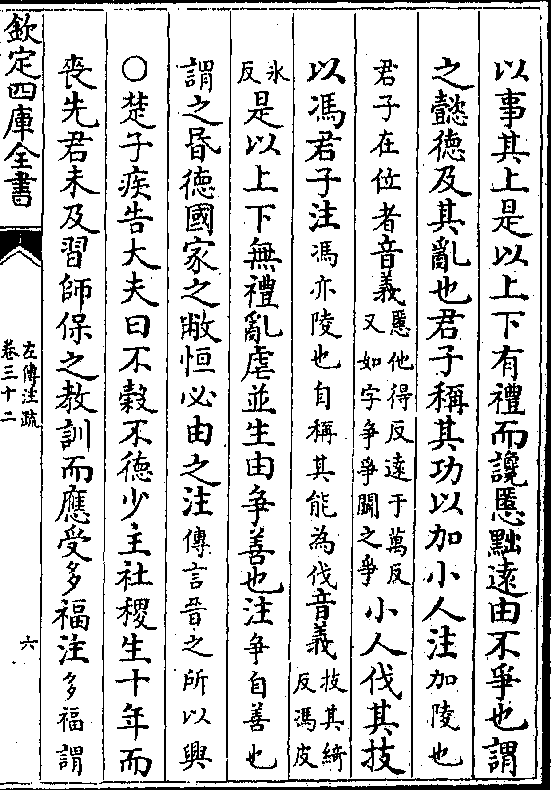 以事其上是以上下有禮而讒慝黜遠由不爭也謂
之懿德及其亂也君子稱其功以加小人注加陵也
君子在位者音義慝他得反遠于萬反
又如字爭爭鬭之爭小人伐其技
以馮君子注馮亦陵也自稱其能為伐音義技其綺
反馮皮
氷
反是以上下無禮亂虐並生由爭善也注爭自善也
謂之昏德國家之敝恒必由之注傳言晉之所以興
○楚子疾告大夫曰不榖不德少主社稷生十年而
喪先君未及習師保之教訓而應受多福注多福謂
欽定四庫全書
左傳注疏
卷三十二
六